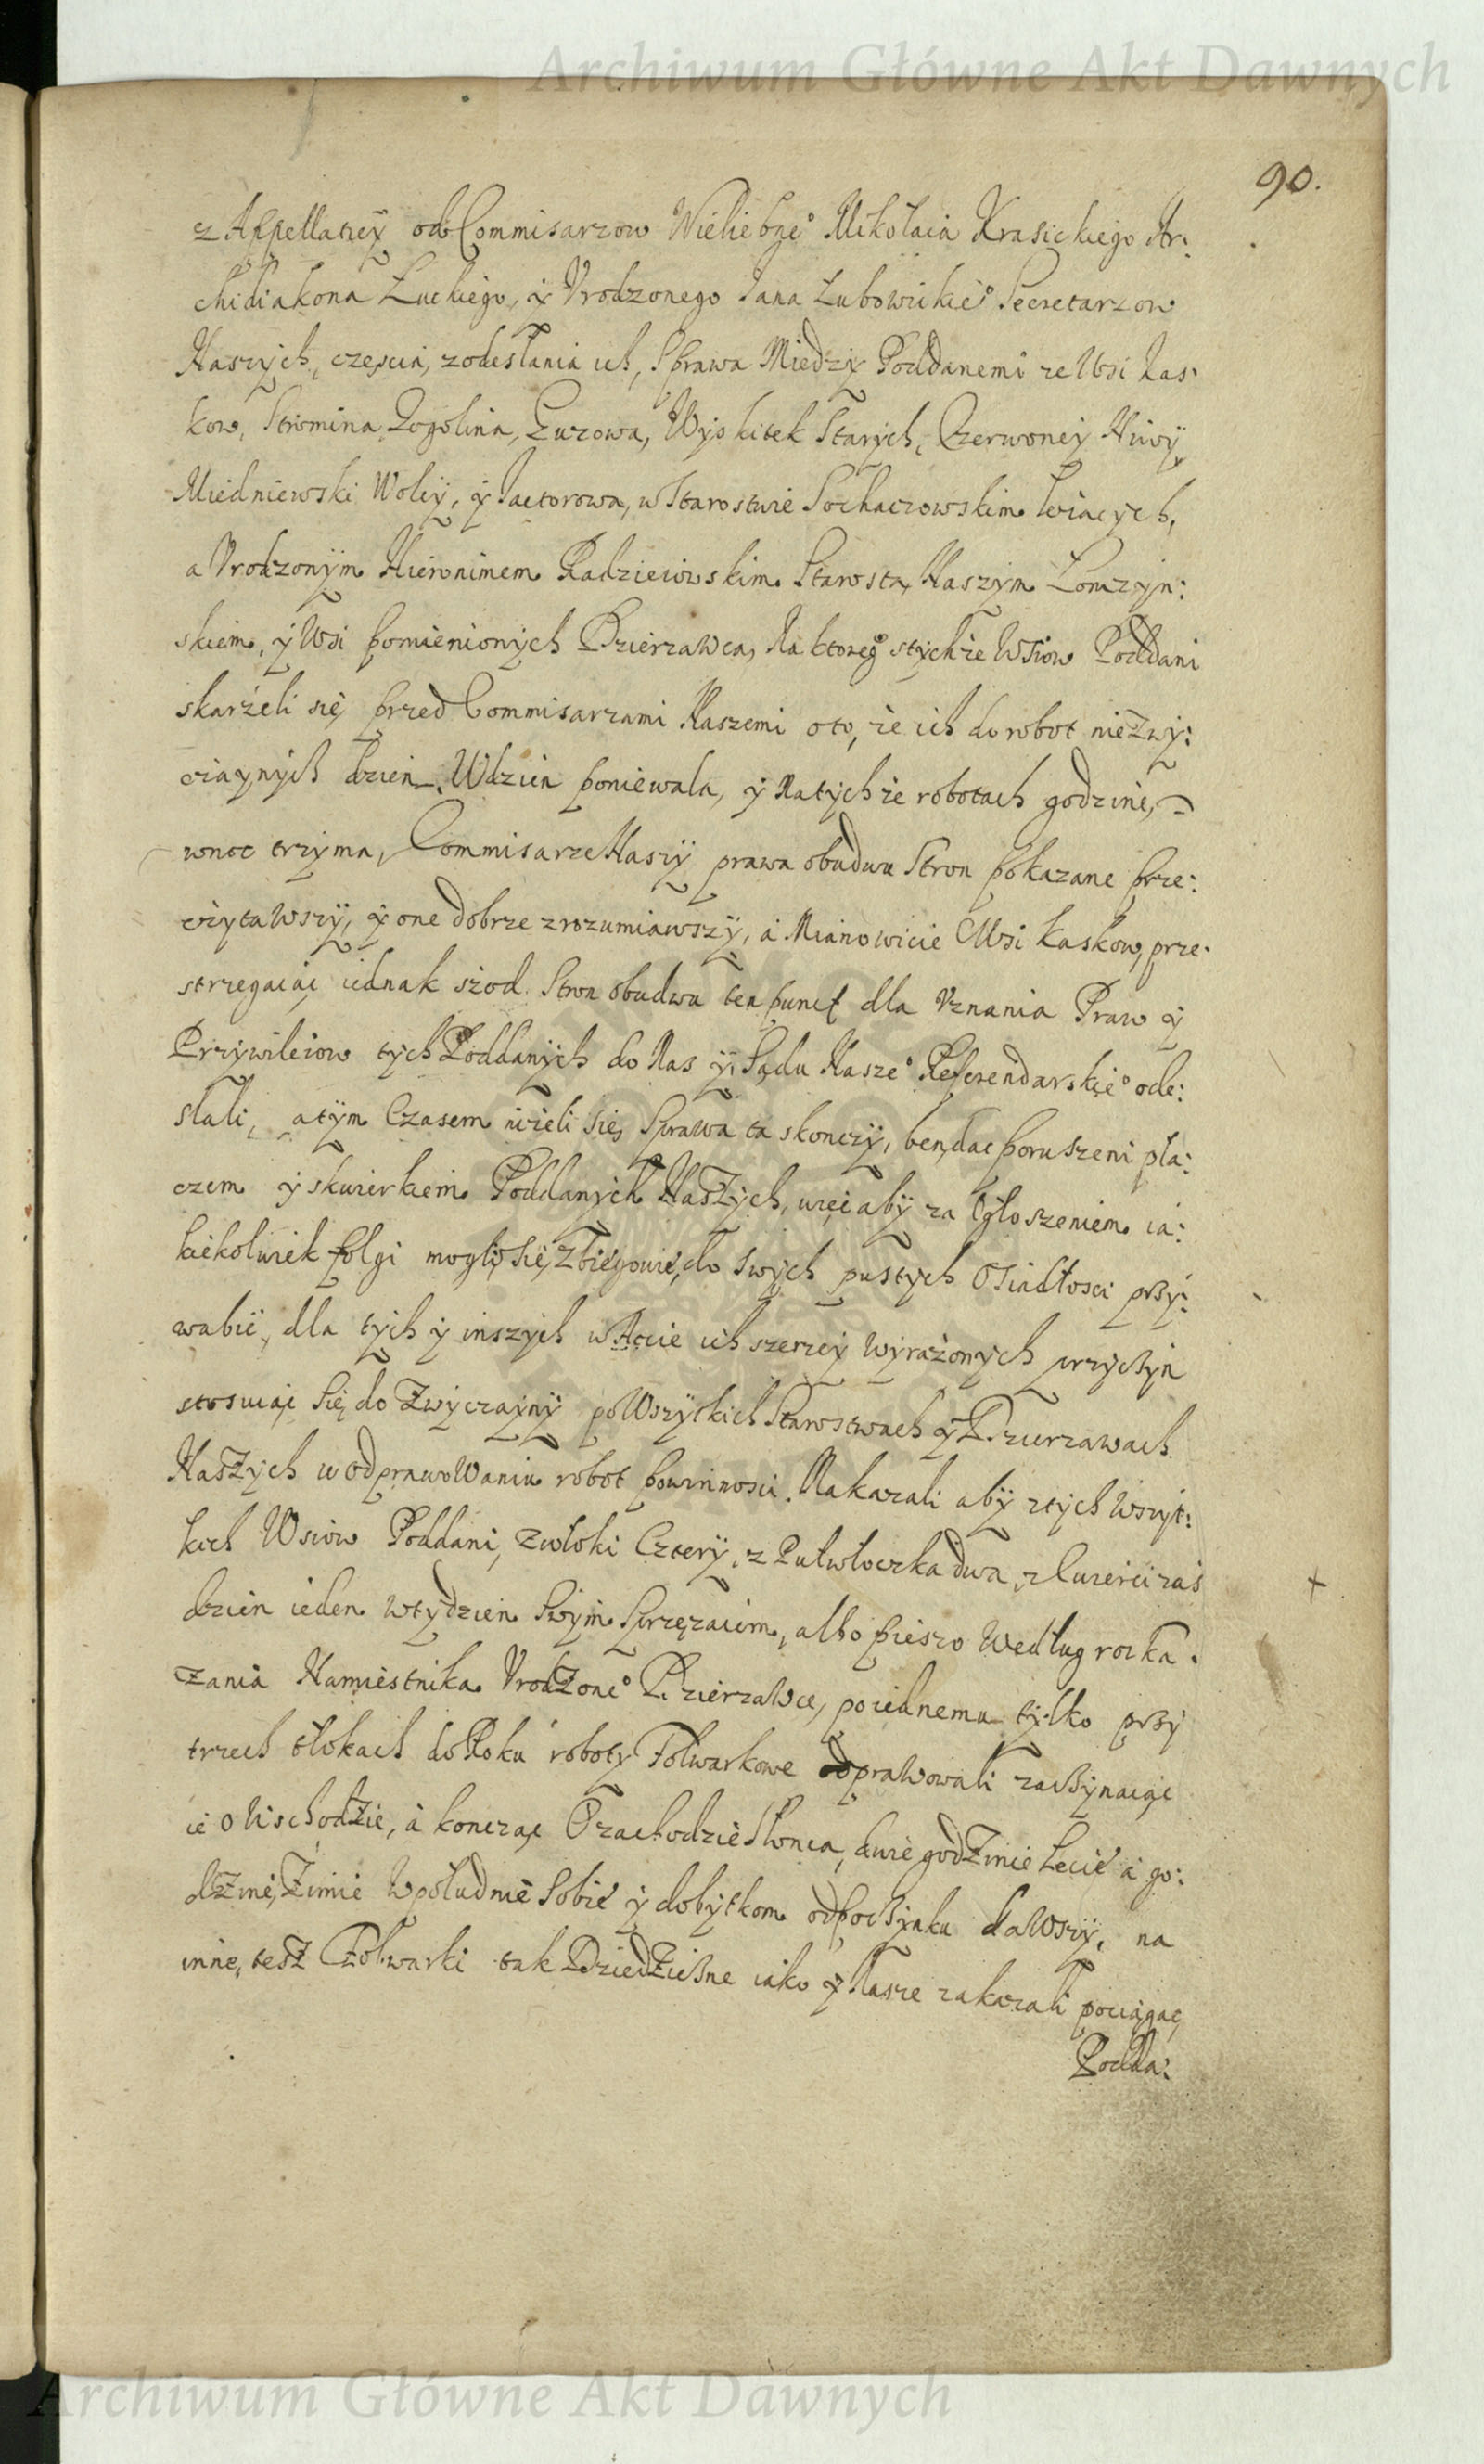 Archiwum Główne Akt Dawnych
90.
z Appellatiey od Commisarzow Wieliebne° Mikołaia Krasickiego Ar:
chidiakona Łuckiego, y Vrodzonego Jana Łubowickie° Secretarzow
Naszych, częscią zodesłania ich, Sprawa Miedzy Poddanemi ze Wsi Kas:
kow, Stromina, Bogolina, Guzowa, Wyskitek Starych, Czerwoney Niwy
Miedniewski Woley, y Jactorowa, w Starostwie Sochaczowskim leżacych,
a Vrodzonym Hieronimem Radzieiowskim Starostą Naszym Lomzyn:
skiem, y Wsi pomienionych Dzierzawcą, Na ktoreg° stychże Wsiow Poddani
skarżeli się przed Commisarzami Naszemi o to, że ich do robot niezwy:
czaynych dzien Wdzien poniewala, y Natychże robotach godzinę,
wnoc trzyma, Commisarze Naszy prawa obudwu Stron pokazane prze:
czytawszy, y one dobrze zrozumiawszy, a Mianowicie Wsi Kaskow, prze:
strzegaiąc iednak szod Stron obudwu ten punct dla Vznania Praw y
Przywileiow tych Poddanych do Nas y Sądu Nasze° Referendarskie° ode:
słali, atym Czasem niżeli się Sprawa ta skonczy, bendac poruszeni pła:
czem y skwierkiem Poddanych Naszych, więc aby za Ogłoszeniem ia:
kieikolwiek folgi mogli się Zbiegowie, do swych pustych Osiadłosci przy:
wabić, dla tych y inszych w Akcie ich szerzey wyrażonych przyczyn
stosuiąc się do Zwyczayny po Wszyckich Starostwach y Dzierzawach
Naszych w odprawowaniu robot powinnosci. Nakazali aby ztych Wszyt:
kich Wsiow Poddani, zwłoki Cztery, z Pułwłoczka dwa, z Cwierci zaś
dzien ieden wtydzien Swym Sprzęzaiem, albo pieszo Według rozka:
zania Namiestnika Vrodzone° Dzierzawce, poiednemu tylko przy
trzech tłokach do Roku roboty Folwarkowe odprawowali zaczynaiąc
ie o Wschodzie, a koncząc O zachodzie Słonca, dwie godzinie Lecie a go:
dzinę Zimie Wpołudnie Sobie y dobytkom odpoczynku dawszy, na
inne, tesz Folwarki tak Dziedziczne iako y Nasze zakazali pociągać
Podda:
Archiwum Główne Akt Dawnych